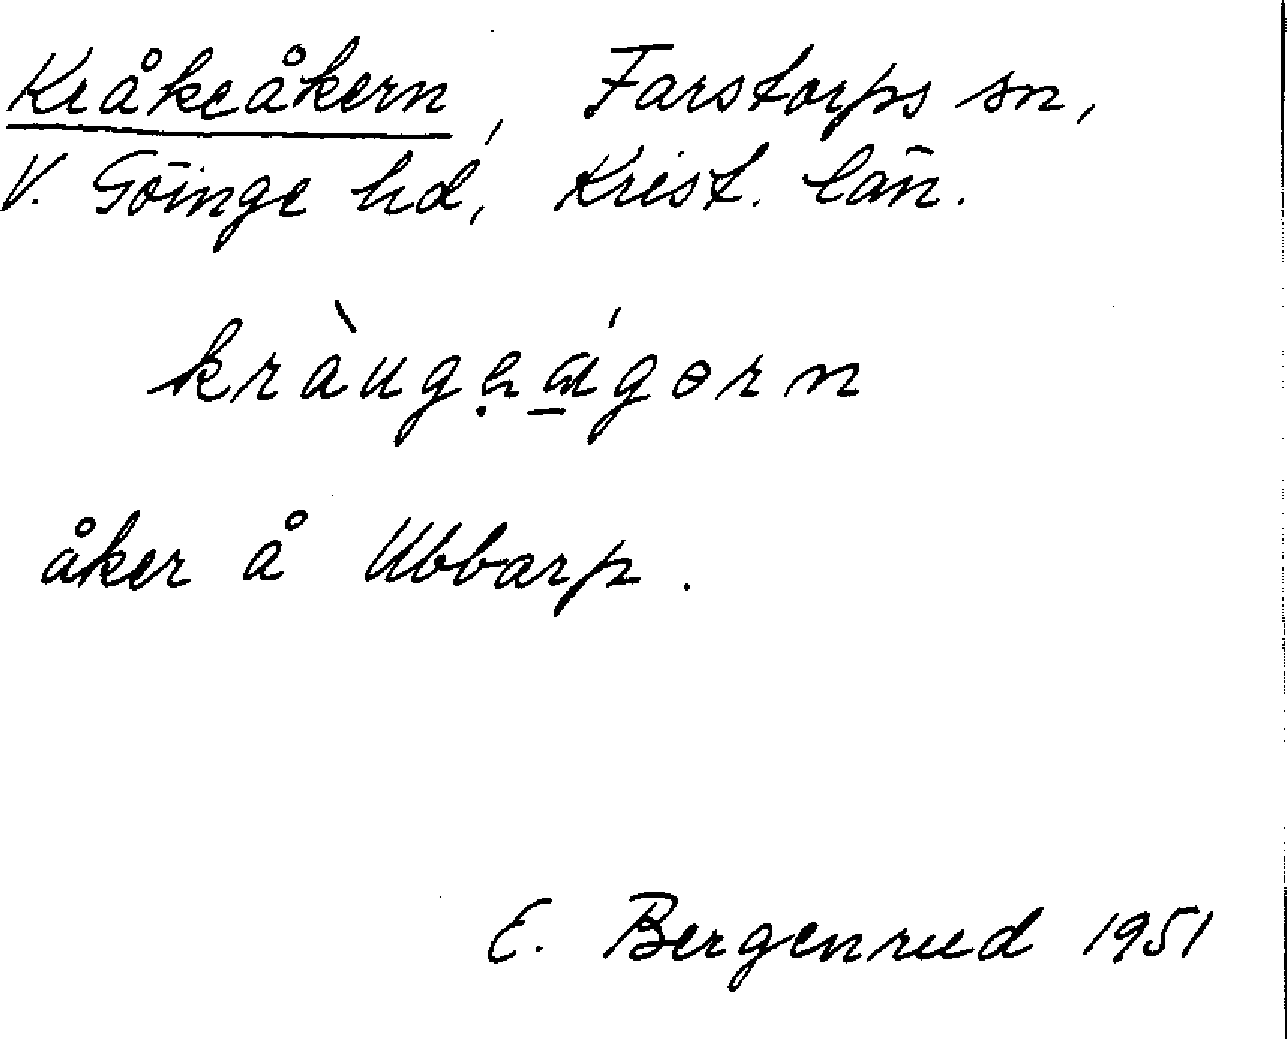 Kråkeåkern, Farstorps sn,
V. Göinge hd, Krist. län.
åker å Ubbarp.
E. Bergenrud 1951